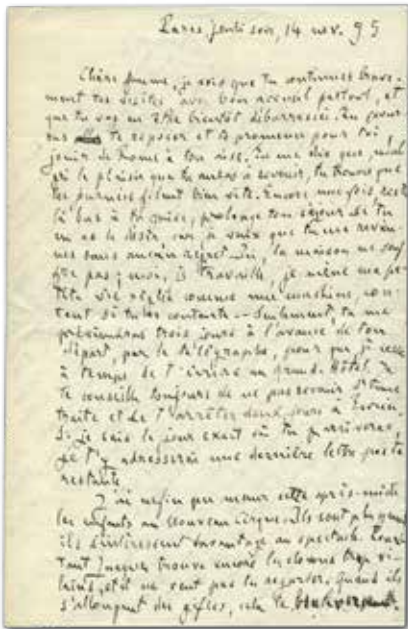 Paris jeudi soir, 14 nov. 95
Chère femme, je vois que tu continues brave-
ment tes visites avec bon accueil partout, et
que tu vas en être bientôt débarrassée. Tu pour-
ras te reposer et te promener pour toi,
jouir de Rome à ton aise. Tu me dis que, mal-
gré le plaisir que tu auras à revenir, tu trouves que
tes journées filent bien vite. Encore une fois, reste
là bas à ta guise, prolonge ton séjour si tu
en as le désir, car je veux que tu me revien-
nes sans aucun regret. Ici, la maison ne souf-
fre pas ; moi, je travaille, je mène ma pe-
tite vie réglée comme une machine, con-
tent si tu es contente. — Seulement, tu me
préviendras trois jours à l'avance de ton
départ, par le télégraphe, pour que je
à temps de t'écrire au grand Hôtel. Je
te conseille toujours de ne pas revenir d'une
traite et de t'arrêter deux jours à
Si je sais le jour exact où tu y arriveras,
je t'y adresserai une dernière lettre poste
restante.
J'ai enfin pu mener cette après-midi
les enfants au Nouveau Cirque. Ils sont plus grands,
ils s'intéressent davantage au spectacle. Pour-
tant Jacques trouve encore les clowns trop vi-
lains, et il ne veut pas les regarder. Quand ils
s'allongent des gifles, cela le bouleverse.